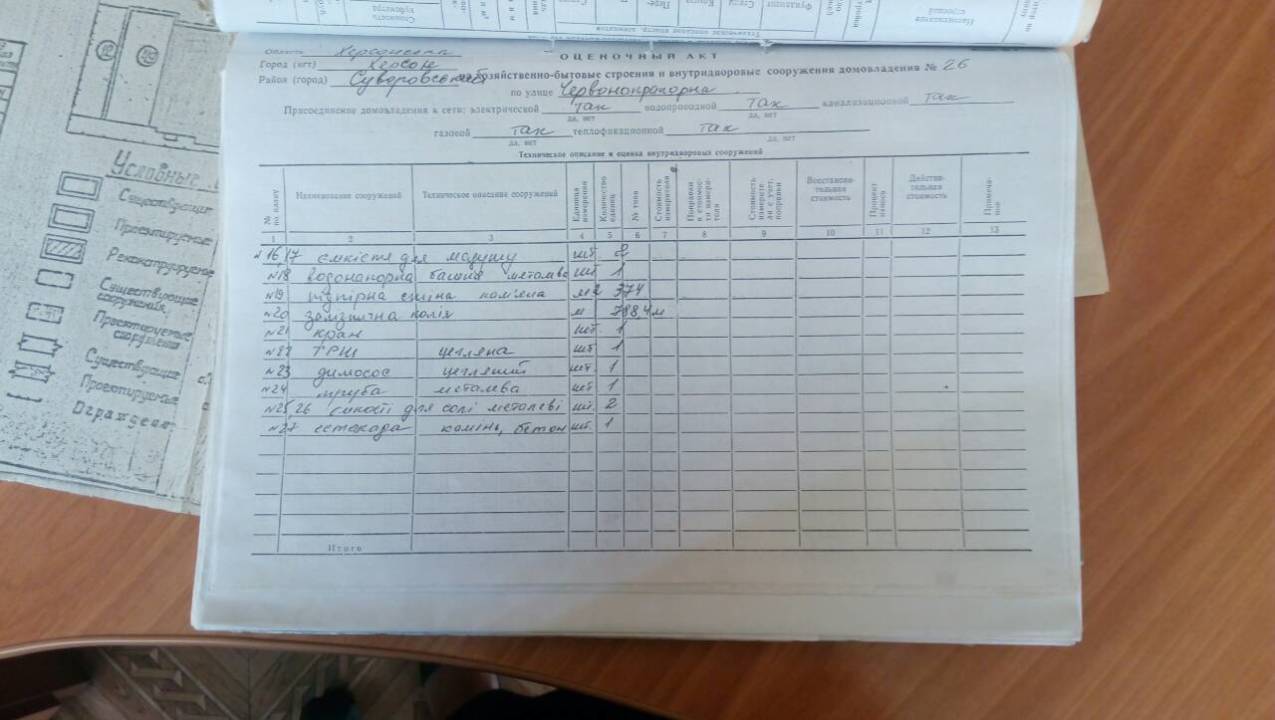 ОЦЕНОЧНЫЙ АКТ
Область Херсонська
Город (пгт) Херсон
Район (город) Суворовський
на хозяйственно-бытовые строения и внутридворовые сооружения домовладения № 26
по улице Червонопрапорна
Присоединение домовладения к сети: электрической так водопроводной так канализационной так
да, нет да, нет
газовой так теплофикационной так
да, нет да, нет
Техническое описание и оценка внутридворовых сооружений
№ по плану Наименование сооружений Техническое описание сооружений Единица измерения Количество единиц № типа Стоимость измерителя Поправки к стоимости измерителя Стоимость измерителя с учет. поправки Восстановительная стоимость Процент износа Действительная стоимость Примечание
1 2 3 4 5 6 7 8 9 10 11 12 13
№16,17 ємкістя для мазуту шт. 2
№18 водонапорна башня металева шт 1
№19 підпірна стіна кам'яна м2 374
№20 залізнична колія м 788,4 м
№21 кран шт. 1
№22 ГРШ цегляна шт 1
№23 димосос цегляний шт. 1
№24 труба металева шт 1
№25,26 ємкості для солі металеві шт. 2
№27 естокада камінь, бетон шт. 1
Итого
Условные
Существующие
Проектируемые
Реконструируемые
Существующие
сооружения
Проектируемые
сооружения
Существующие
Проектируемая